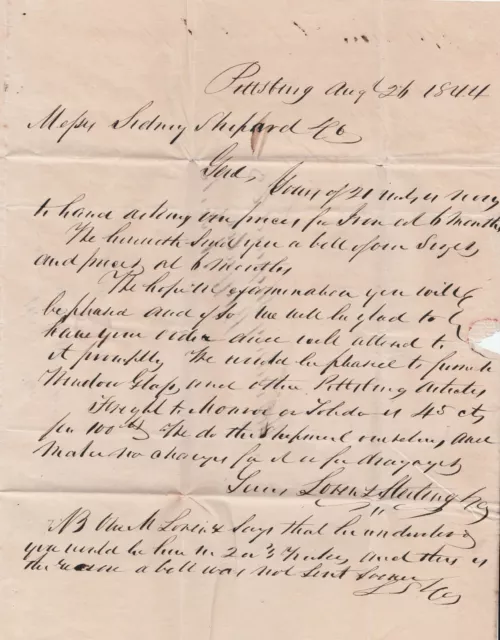 Pittsburg Augt 26 1844
Messrs Sidney Shepard & Co
Gent, Yours of 21 inst is now
to hand asking our prices for Iron at 6 months
We herewith send you a bill of our Sizes
and prices at 6 months
We hope on examination you will
be pleased and if so we will be glad to
have your order and will attend to
it promptly We would be pleased to furnish
Window Glass and other Pittsburg articles
Freight to Monroe or Toledo is 45 cts
per 100 lbs We do the Shipment ourselves and
make no charges for it or for drayage
Yours Lorenz Sterling & Co
NB Our M Lorenz says that he understood
you would be here in 2 or 3 weeks, and this is
the reason a bill was not sent sooner
L S & Co